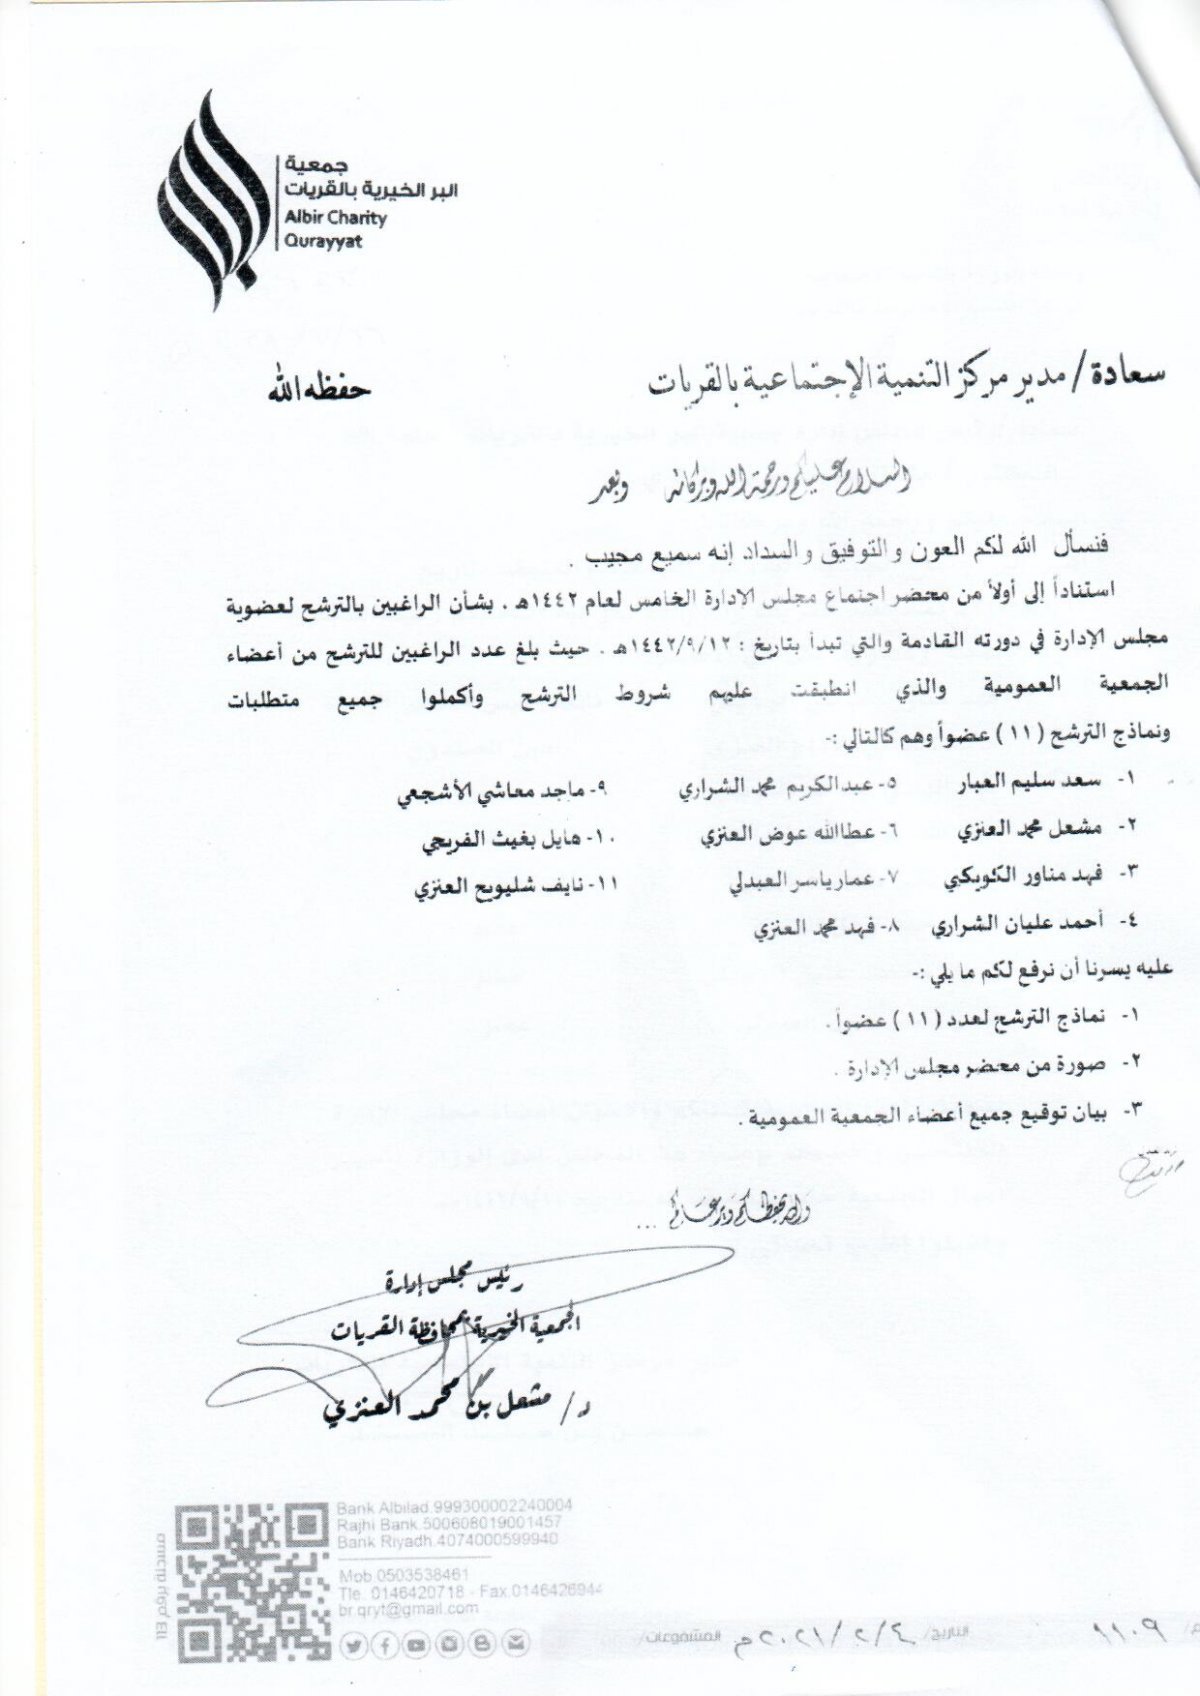 جمعية
البر الخيرية بالقريات
Albir Charity
Qurayyat
سعادة / مدير مركز التنمية الإجتماعية بالقريات حفظه الله
السلام عليكم ورحمة الله وبركاته وبعد
فنسأل الله لكم العون والتوفيق والسداد إنه سميع مجيب .
استناداً إلى أولاً من محضر اجتماع مجلس الادارة الخامس لعام ١٤٤٢هـ . بشأن الراغبين بالترشح لعضوية
مجلس الإدارة في دورته القادمة والتي تبدأ بتاريخ : ١٤٤٢/٩/١٢هـ . حيث بلغ عدد الراغبين للترشح من أعضاء
الجمعية العمومية والذي انطبقت عليهم شروط الترشح وأكملوا جميع متطلبات
ونماذج الترشح ( ١١ ) عضواً وهم كالتالي :-
١- سعد سليم العبار ٥- عبدالكريم محمد الشراري ٩- ماجد معاشي الأشجعي
٢- مشعل محمد العنزي ٦- عطاالله عوض العنزي ١٠- هايل بغيث الفريجي
٣- فهد مناور الكويكبي ٧- عمار ياسر العبدلي ١١- نايف شليويح العنزي
٤- أحمد عليان الشراري ٨- فهد محمد العنزي
عليه يسرنا أن نرفع لكم ما يلي :-
١- نماذج الترشح لعدد ( ١١ ) عضواً .
٢- صورة من محضر مجلس الإدارة .
٣- بيان توقيع جميع أعضاء الجمعية العمومية .
والله يحفظكم ويرعاكم ...
رئيس مجلس إدارة
الجمعية الخيرية بمحافظة القريات
د/ مشعل بن محمد العنزي
Bank Albilad.999300002240004
Rajhi Bank.500608019001457
Bank Riyadh.4074000599940
Mob.0503538461
Tle. 0146420718 - Fax.0146426944
br.qryt@gmail.com
١١٠٩ التاريخ/ ٢٠٢١/٢/٤م المشفوعات/